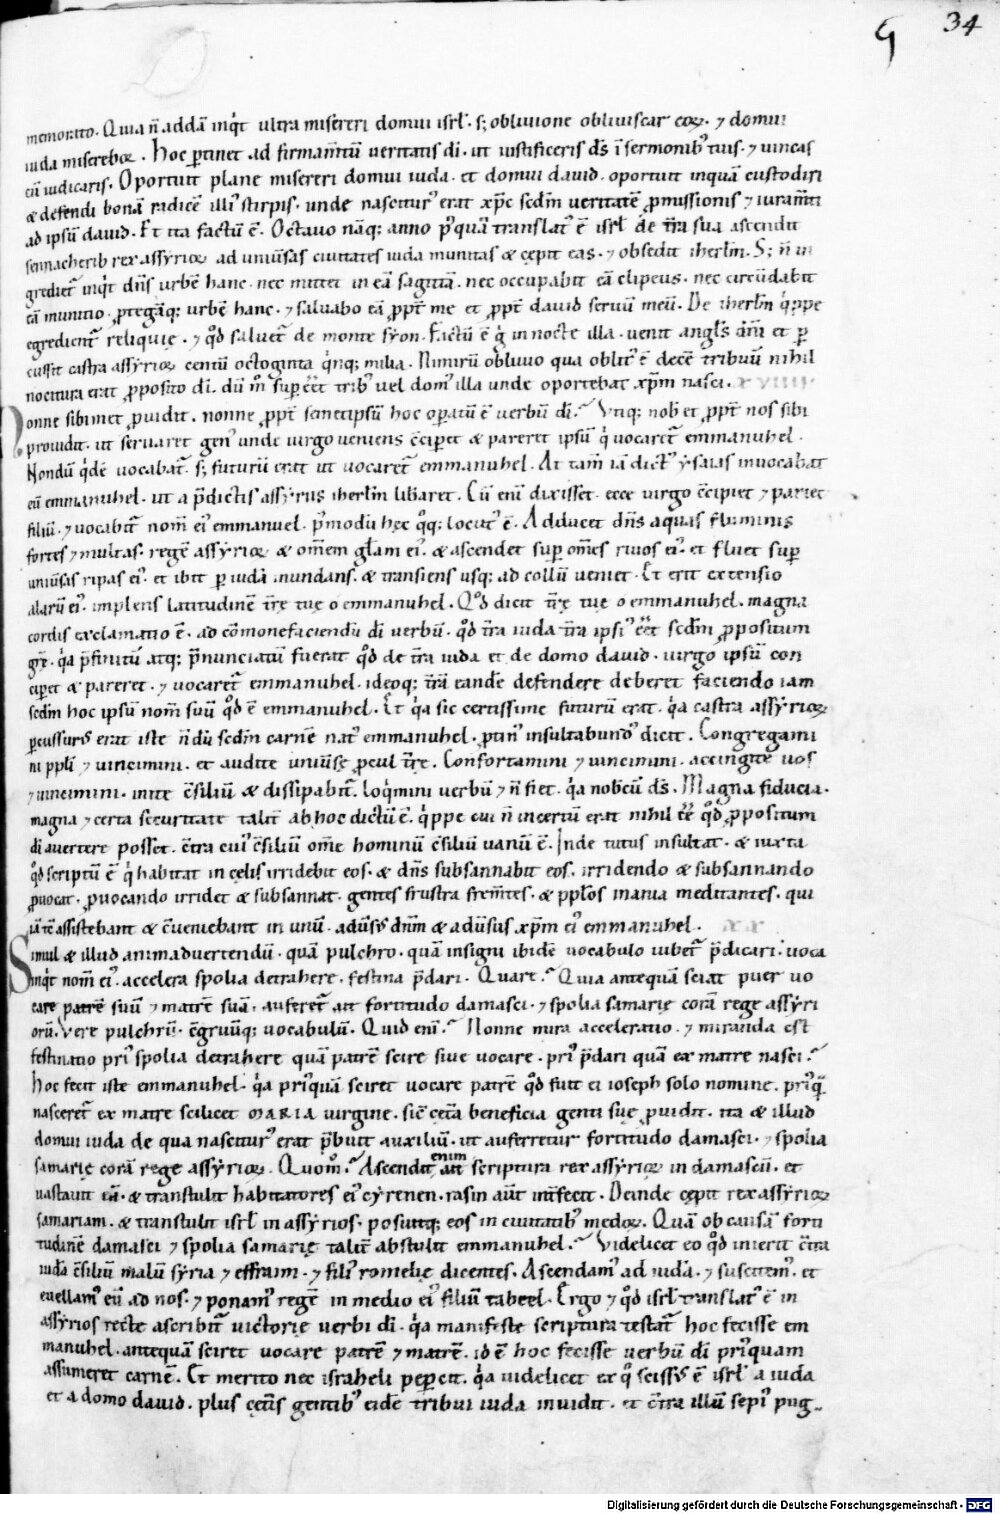 G 34
memorato. Quia n̄ addā inq̇t ultra misereri domui isrł. s; obliuione obliuiscar eoꝝ. ⁊ domui
iuda miserebor. hoc ꝑtinet ad firmam̄tū ueritatis dī. ut iustificeris dn̄s ī sermonibꝰ tuis. ⁊ uincas
cū iudicaris. Oportuit plane misereri domui iuda. et domui dauid. oportuit inquā custodiri
& defendi bonā radicē illiꝰ stirpis. unde nasciturꝰ erat xp̄c scdm̄ ueritatē ꝓmissionis ⁊ iuram̄ti
ad ipsū dauid. Et ita factū ē. Octauo nāq; anno pꝰquā translatꝰ ē isrł de t̄ra sua ascendit
sennacherib rex assyrioꝝ ad uniūsas ciuitates iuda munitas & cępit eas. ⁊ obsedit iherlm̄. S; n̄ in
gredietꝰ inq̇t dn̄s urbē hanc. nec mittet in eā sagittā. nec occupabit eā clipeus. nec circūdabit
eā munitio. ꝓtegāq; urbē hanc. ⁊ saluabo eā ꝓpt̄ me et ꝓpt̄ dauid seruū meū. De iherlm̄ q̇ppe
egredient̄ reliquię. ⁊ qd̄ saluet̄ de monte syon. Factū ē g̊ in nocte illa. uenit angłs dn̄i et ꝑ
cussit castra assyrioꝝ centū octoginta q̇nq; milia. Nimirū obliuio qua oblitꝰ ē decē tribuū nihil
nocitura erat ꝓposito dī. dū m̊ suꝑēēt tribꝰ uel domꝰ illa unde oportebat xp̄m nasci. xviiii.
Nonne sibimet ꝓuidit. nonne ꝓpt̄ semetipsū hoc opatū ē uerbū dī? Vtiq; nob̄ et ꝓpt̄ nos sibi
prouidit. ut seruaret genꝰ unde uirgo ueniens c̄cipet & pareret ipsū q̇ uocaret̄ emmanuhel.
Nondū q̇dē uocabat̄. s; futurū erat ut uocaret̄ emmanuhel. At tam̄ iā dictꝰ ysaias inuocabat
eū emmanuhel. ut a p̄dictis assyriis iherlm̄ lib̄aret. Cū enī dixisset. ecce uirgo c̄cipiet ⁊ pariet
filiū. ⁊ uocabit̄ nom̄ eiꝰ emmanuel. p̄modū hęc qq; locutꝰ ē. Adducet dn̄s aquas fluminis
fortes ⁊ multas. regē assyrioꝝ & om̄em głam eiꝰ. & ascendet suꝑ om̄es riuos eiꝰ. et fluet suꝑ
uniūsas ripas eiꝰ. et ibit ꝑ iudā inundans. & transiens usq; ad collū ueniet. Et erit extensio
alarū eiꝰ. implens latitudinē t̄rę tuę o emmanuhel. Qd̄ dicit t̄rę tuę o emmanuhel. magna
cordis exclamatio ē. ad cōmonefaciendū dī uerbū. qd̄ t̄ra iuda t̄ra ipsiꝰ ēēt scdm̄ ꝓpositum
grę̄. q̇a p̄finitū atq; p̄nunciatū fuerat qd̄ de t̄ra iuda et de domo dauid. uirgo ipsū con
cipet & pareret. ⁊ uocaret̄ emmanuhel. ideoq; t̄rā eandē defendere deberet faciendo iam
scdm̄ hoc ipsū nom̄ suū qd̄ ē emmanuhel. Et q̇a sic certissime futurū erat. q̇a castra assyrioꝝ
ꝑcussurꝰ erat iste n̄dū scdm̄ carnē natꝰ emmanuhel. ꝓtinꝰ insultabundꝰ dicit. Congregami
ni ppli ⁊ uincimini. et audite uniūsę ꝓcul t̄rę. Confortamini ⁊ uincimini. accingite uos
⁊ uincimini. inite c̄siliū & dissipabit̄. loq̇mini uerbū ⁊ n̄ fiet. q̇a nobcū ds̄. Magna fiducia.
magna ⁊ certa securitate talit̄ ab hoc dictū ē. q̇ppe cui n̄ incertū erat nihil ēē qd̄ ꝓpositum
dī auertere posset. c̄tra cuiꝰ c̄siliū om̄e hominū c̄siliū uanū ē. Inde tutus insultat. & iuxta
qd̄ scriptū ē q̇ habitat in cęlis irridebit eos. & dn̄s subsannabit eos. irridendo & subsannando
ꝓuocat. ꝓuocando irridet & subsannat. gentes frustra frem̄tes. & pplos inania meditantes. qui
iā tc̄ assistebant & c̄ueniebant in unū. aduūsꝰ dn̄m & aduūsus xp̄m eiꝰ emmanuhel. xx
Simul & illud animaduertendū. quā pulchro. quā insigni ibidē uocabulo iubet̄ p̄dicari. uoca
inq̇t nom̄ eiꝰ. accelera spolia detrahere. festina p̄dari. Quare? Quia antequā sciat puer uo
care patrē suū ⁊ matrē suā. auferet̄ ait fortitudo damasci. ⁊ spolia samarię corā rege assyri
orū. Vere pulchrū. c̄gruūq; uocabulū. Quid enī? Nonne mira acceleratio. ⁊ miranda est
festinatio priꝰ spolia detrahere quā patrē scire siue uocare. priꝰ p̄dari quā ex matre nasci?
hoc fecit iste emmanuhel. q̇a priꝰquā sciret uocare patrē qd̄ fuit ei ioseph solo nomine. priꝰq̄
nasceret̄ ex matre scilicet MARIA uirgine. sic̄ cęt̄a beneficia genti suę ꝓuidit. ita & illud
domui iuda de qua nasciturꝰ erat p̄buit auxiliū. ut auferretur fortitudo damasci. ⁊ spolia
samarię corā rege assyrioꝝ. Quom̊? Ascendit enim ait scriptura rex assyrioꝝ in damascū. et
uastauit eā. & transtulit habitatores eiꝰ cyrenen. rasin aūt int̄fecit. Deinde cępit rex assyrioꝝ
samariam. & transtulit isrł in assyrios. posuitq; eos in ciuitatibꝰ medoꝝ. Quā ob causā forti
tudinē damasci ⁊ spolia samarię talit̄ abstulit emmanuhel? Videlicet eo qd̄ inierit c̄tra
iudā c̄siliū malū syria ⁊ effraim. ⁊ filiꝰ romelię dicentes. Ascendamꝰ ad iudā. ⁊ suscitemꝰ. et
euellamꝰ eū ad nos. ⁊ ponamꝰ regē in medio eiꝰ filiū tabeel. Ergo ⁊ qd̄ isrł translatꝰ ē in
assyrios recte ascribit̄ uictorię uerbi dī. q̇a manifeste scriptura testat̄ hoc fecisse em
manuhel. antequā sciret uocare patrē ⁊ matrē. id ē hoc fecisse uerbū dī priꝰquam
assumeret carnē. Et merito nec israheli peꝑcit. q̇a uidelicet ex q̊ scissꝰ ē isrł a iuda
et a domo dauid. plus cęt̄is gentibꝰ eidē tribui iuda inuidit. et c̄tra illū sepiꝰ pug-
Digitalisierung gefördert durch die Deutsche Forschungsgemeinschaft - DFG